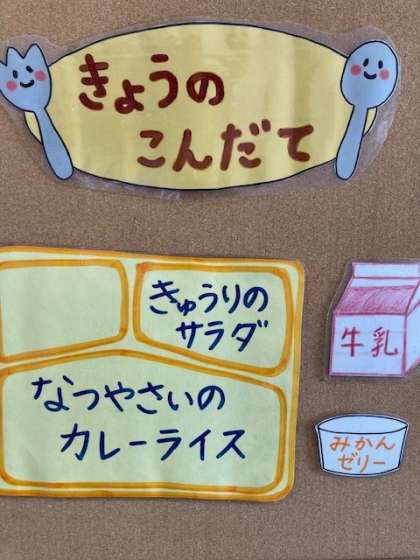 きょうの
こんだて
きゅうりの
サラダ
なつやさいの
カレーライス
牛乳
みかん
ゼリー